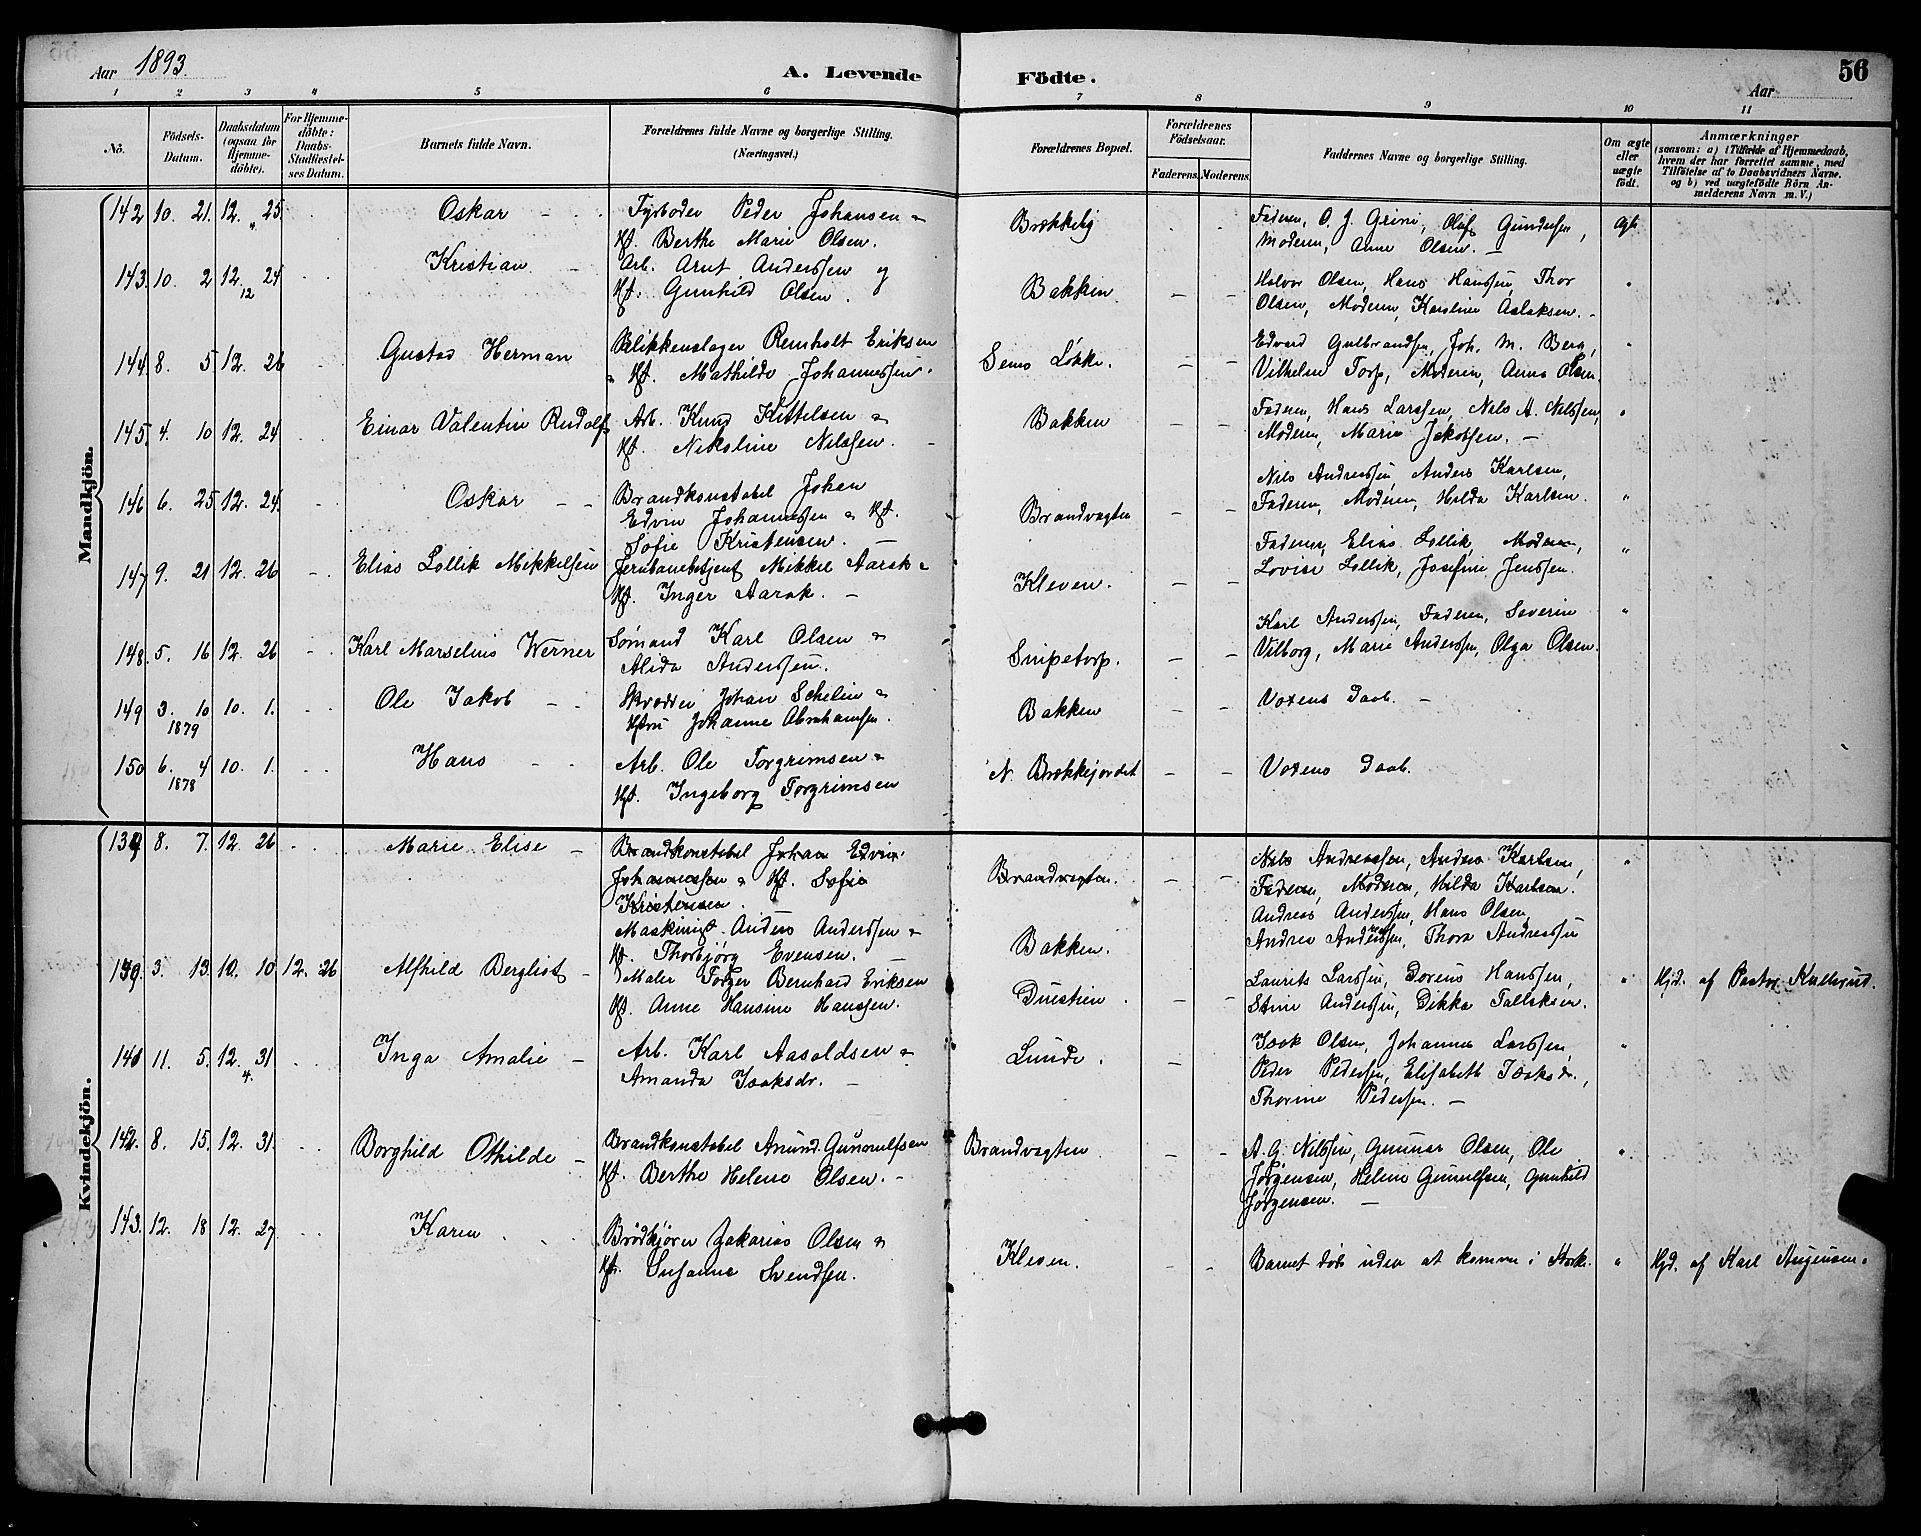 Aar 1893.
A. Levende Födte.
56
Aar
1 2 3 4 5 6 7 8 9 10 11
No.
Födsels-Datum.
Daabsdatum (ogsaa for Hjemmedöbte).
For Hjemmedöbte: Daabs-Stadfæstelses Datum.
Barnets fulde Navn.
Forældrenes fulde Navne og borgerlige Stilling. (Næringsvei.)
Forældrenes Bopæl.
Forældrenes Födselsaar.
Faderens. Moderens.
Faddernes Navne og borgerlige Stilling.
Om ægte eller uægte födt.
Anmærkninger (saasom: a) i Tilfælde af Hjemmedaab, hvem der har forrettet samme, med Tilföielse af to Daabsvidners Navne. og b) ved uægtefödte Börn Anmelderens Navn m. V.)
Mandkjön.
142 10. 21. 12. 25 Oskar Fyrböder Peder Johansen
Hst. Berthe Marie Olsen.
Brekkelig
Faderen, O. J. Grini, Oluf Gundersen,
Moderen, Anne Olsen. Ægte
143. 10. 2 12. 24 12 Kristian Arb. Arnt Anderssen og
Hst. Gunhild Olsen.
Bakken
Halvor Olsen, Hans Hanssen, Thor
Olsen, Moderen, Karoline Aslaksen.
144. 8. 5 12. 26 Gustav Herman Blikkenslager Reinholt Eriksen
Hst. Mathilde Johannessen.
Sems Løkke.
Edvard Gulbrandsen, Joh. M. Berg,
Vilhelm Torp, Moderen, Anna Olsen.
145. 4. 10 12. 24 Einar Valentin Rudolf Arb. Knud Kittelsen
Hst. Nikoline Nilssen.
Bakken
Faderen, Hans Larssen, Nils A. Nilssen,
Moderen, Marie Jakobsen.
146 6. 25 12. 24. Oskar Brandkonstabel Johan
Edvin Johannessen Hst.
Sofie Kristensen.
Brandvagten
Nils Andreassen, Anders Karlsen,
Faderen, Moderen, Hilda Karlsen.
147 9. 21 12. 26 Elias Lollik Mikkelsen Jernbanebetjent Mikkel Aarak
Hst. Inger Aarak.
Kleven.
Faderen, Elias Lollik, Moderen,
Lovise Lollik, Josefine Jenssen.
148. 5. 16 12. 26 Karl Marselius Werner Sømand Karl Olsen
Alida Anderssen.
Snipetorp.
Karl Anderssen, Faderen, Severin
Vilborg, Marie Anderssen, Olga Olsen.
149 3. 10 1879 10. 1. Ole Jakob Skrædder Johan Schelin
Hustru Johanne Abrahamsen.
Bakken
Voxens Daab.
150 6. 4 1878 10. 1. Hans Arb. Ole Torgrimsen
Hst. Ingeborg Torgrimsen
N. Brekkejordet
Voxens Daab.
Kvindekjön.
139 8. 7. 12. 26 Marie Elise Brandkonstabel Johan Edvin
Johannessen Hst. Sofie
Kristensen.
Brandvagten.
Nils Andreassen, Anders Karlsen,
Faderen, Moderen, Hilda Karlsen.
Maskinist Anders Anderssen
Hst. Thorbjørg Evensen.
Bakken.
Andreas Anderssen, Hans Olsen,
Andrea Anderssen, Thora Andreassen
3. 13. 10. 10 12. 26 Alfhild Bergliot Maler Torger Bernhard Eriksen
Hst. Anne Hansine Hanssen.
Duestien.
Laurits Larssen, Dorens Hanssen,
Stine Anderssen, Dikka Tallaksen.
Hjd. af Pastor Kullerud.
141 11. 5. 12. 31 4. Inga Amalie Arb. Karl Aasoldsen
Amanda Isaksdr.
Lunde.
Isak Olsen, Johannes Larssen,
Peder Pedersen, Elisabeth Isaksdr.,
Thorine Pedersen.
142. 8. 15. 12. 31. Borghild Othilde Brandkonstabel Amund Gunnulfsen
Hst. Berthe Helene Olsen.
Brandvagten.
A. G. Nilssen, Gunnar Olsen, Ole
Jørgensen, Helene Gunulfsen, Gunhild
Jørgensen.
143. 12. 18 12. 27 Karen Brödkjører Zakarias Olsen
Hst. Susanne Svendsen.
Kleven.
Barnet døde uden at komme i Kirke.
Hjd. af Karl Jørgensen.